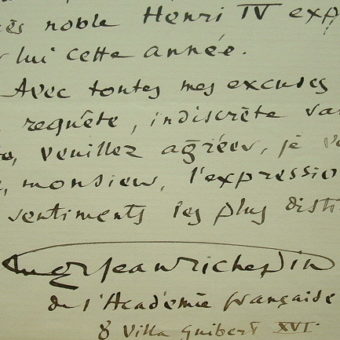 ès noble Henri IV exp
lui cette année.
Avec toutes mes excuses
requête, indiscrète
veuillez agréer, je
monsieur, l'expressio
sentiments les plus disti
Jean Richepin
de l'Académie française
8 Villa Guibert XVI